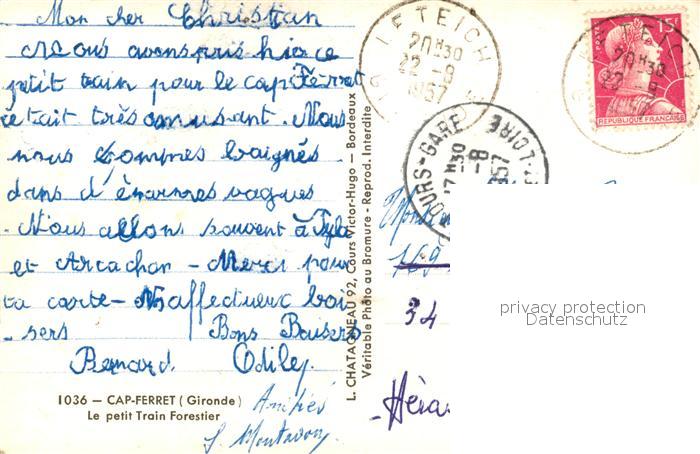 Mon cher Christian
Nous avons pris hier ce
petit train pour le cap Ferret
c'etait très amusant. Nous
nous sommes baignés
dans d'énormes vagues
- Nous allons souvent à Pyla
et Arcachon - Merci pour
ta carte - Nos affectueux bai
- sers Bons Baisers
Bernard Odile
1036 — CAP-FERRET (Gironde)
Le petit Train Forestier
Amitiés
L. CHATAGNEAU 92, Cours Victor-Hugo — Bordeaux
Véritable Photo au Bromure - Reprod. Interdite
LE TEICH
20H30
22-8
1957
TOURS-GARE
17H30
-8
1957
LOIRE
POSTES
15F
REPUBLIQUE FRANÇAISE
20H30
22-8
169
34
-Héra
privacy protection
Datenschutz